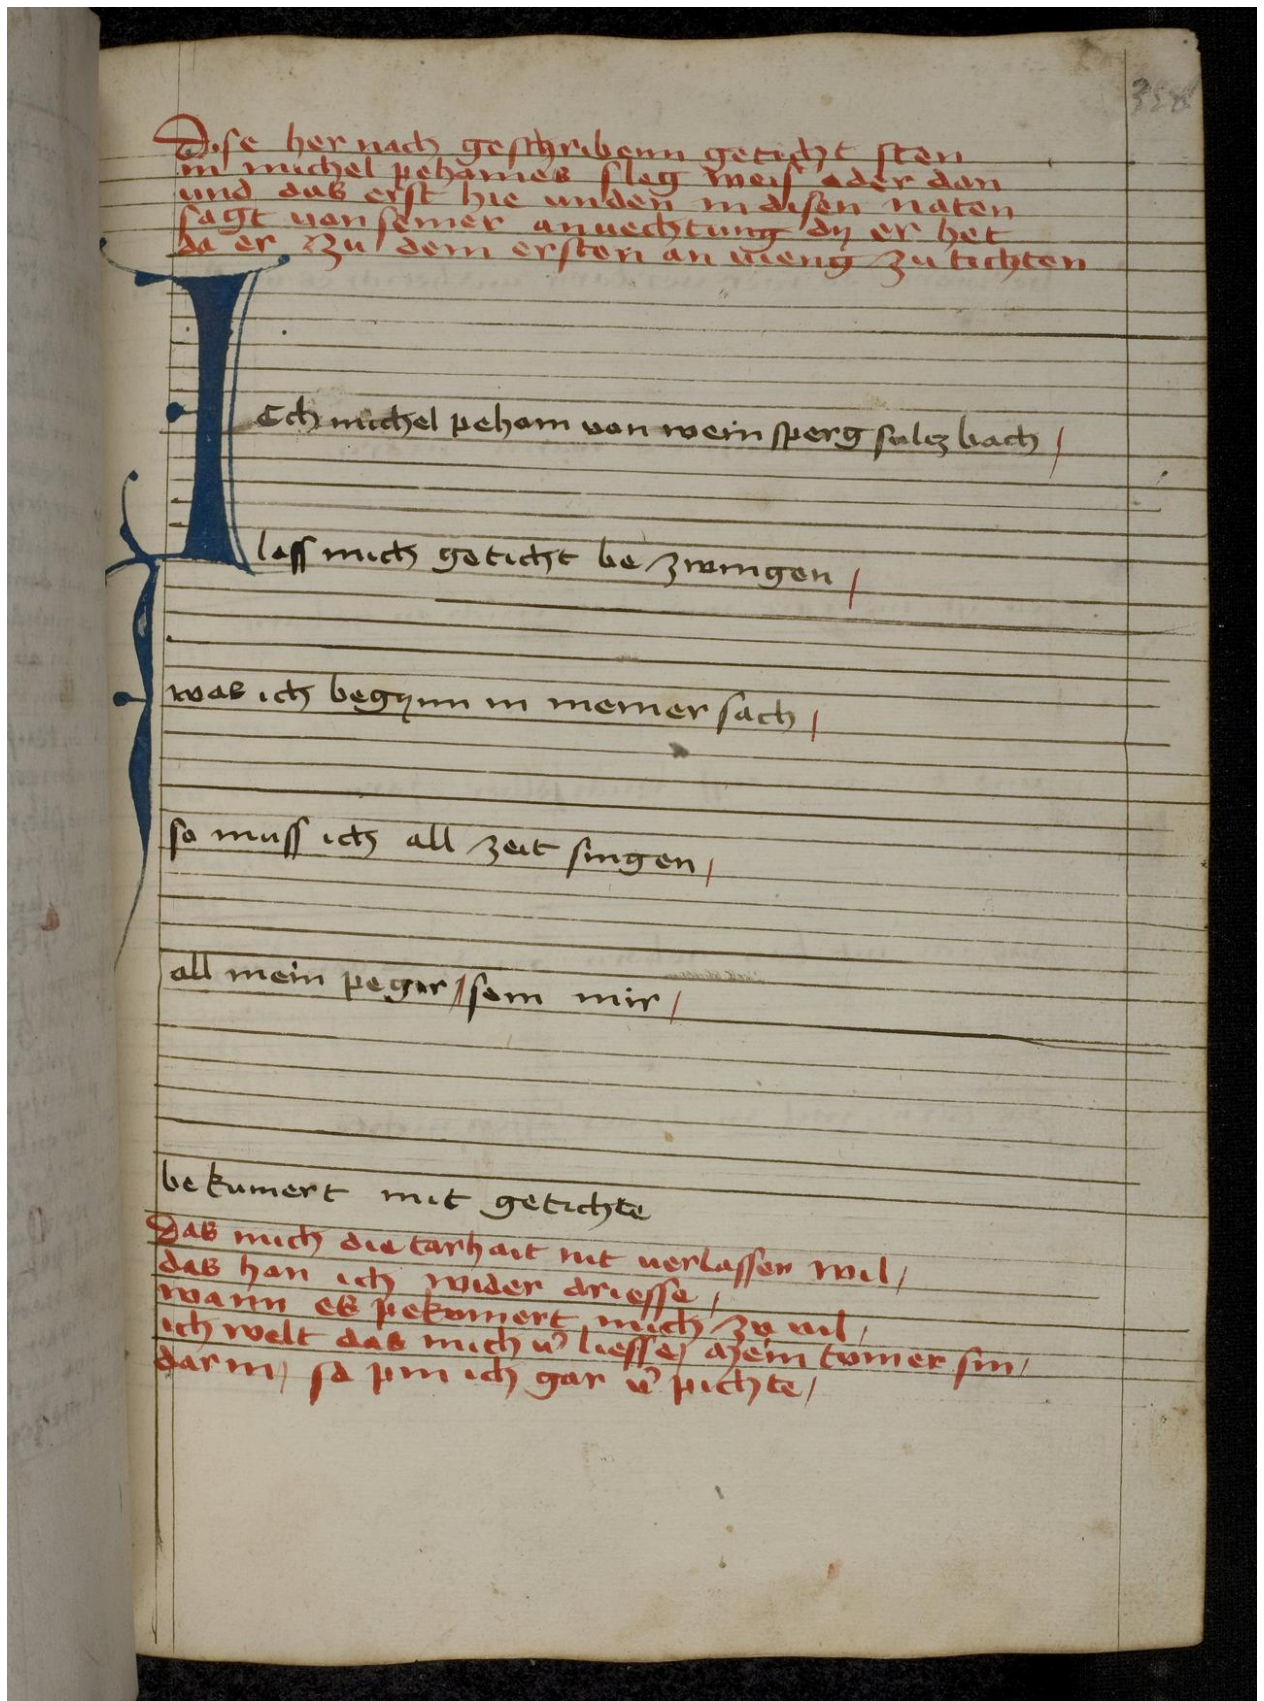 358
Dise her nach geschribenn geticht sten
in michel pehames slag weis oder don
und das erst hie unden in disen noten
sagt von seiner anvechtung dy er het
do er zu dem ersten an vieng zu tichten
ICh michel peham von wein sperg sulcz bach /
loss mich geticht be zwingen /
was ich begynn in meiner sach /
so muss ich all zeit singen /
all mein peger // sem mir /
be kumert mit getichte
Das mich die torhait nit verlassen wil /
das han ich wider driesse /
wann es pekumert mich zu vil /
ich wolt das mich v̾ liesse / mein tumer sin /
dar in / so pin ich gar v̾ pichte /